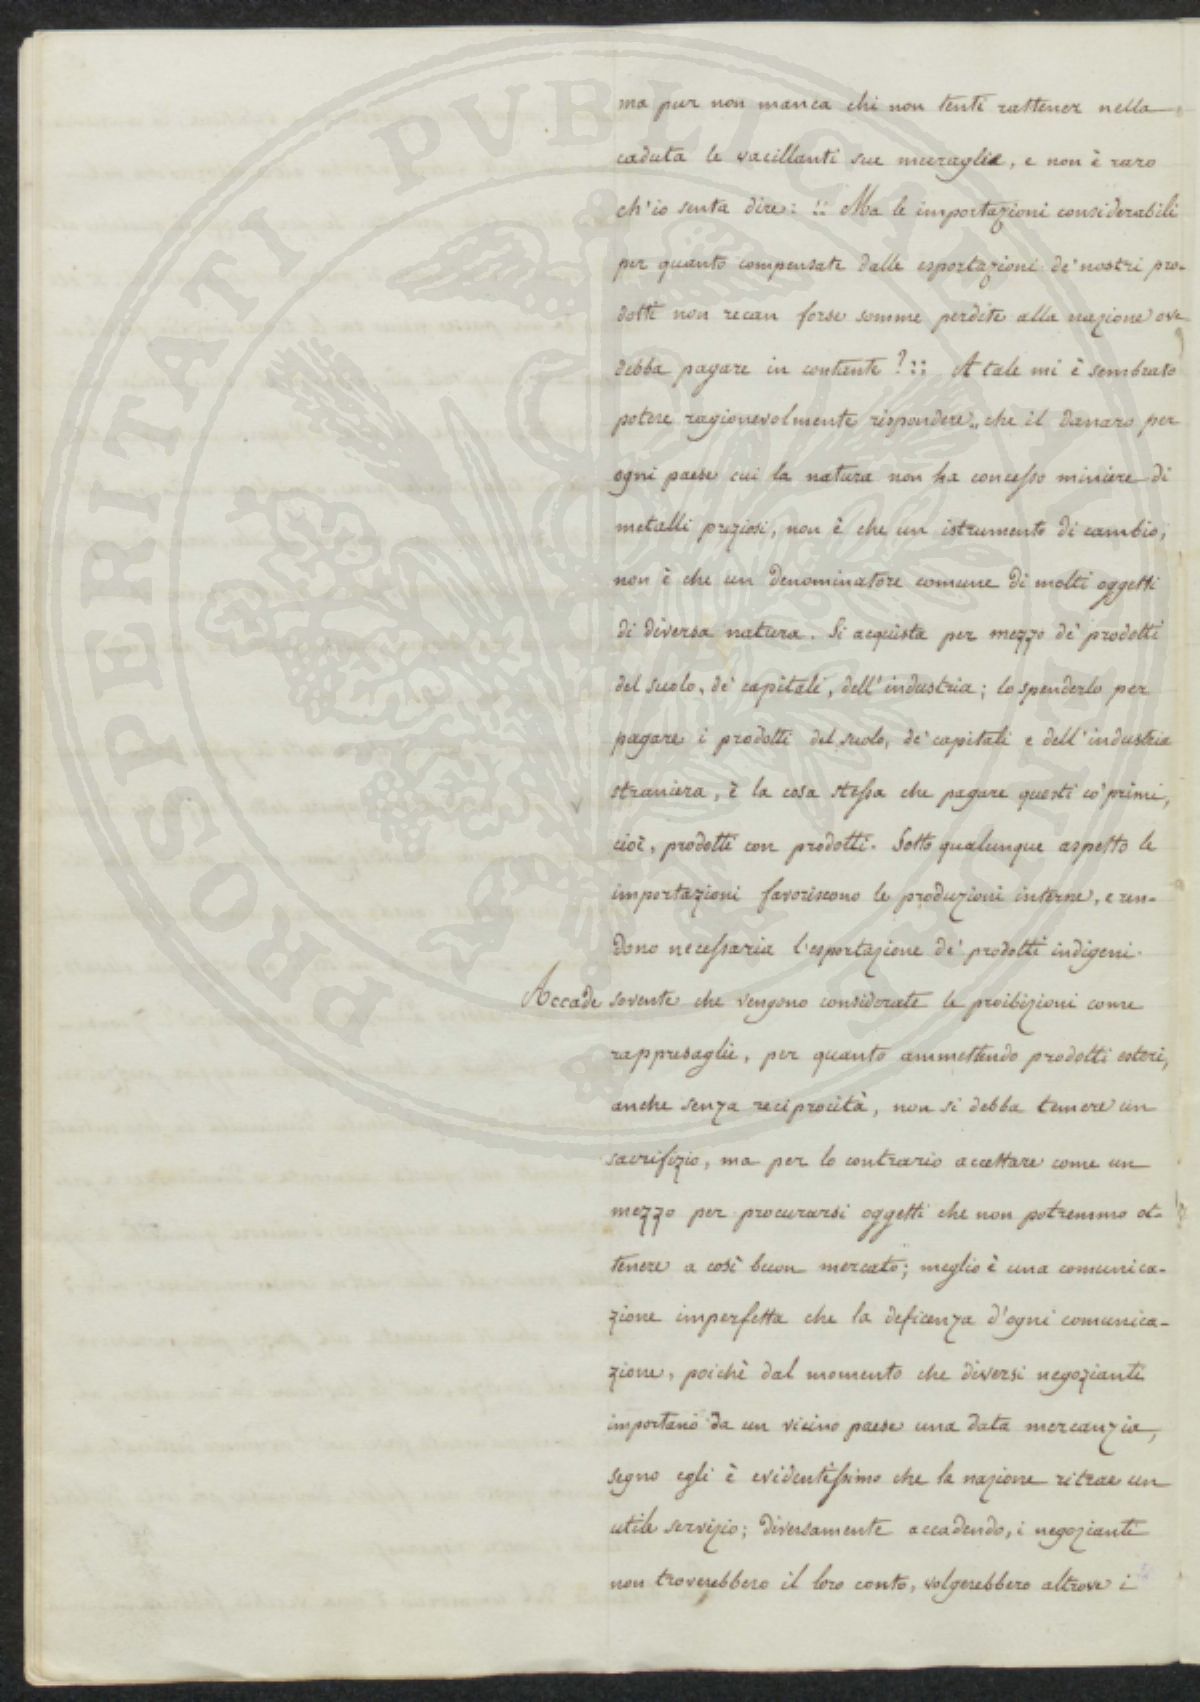 ma pur non manca chi non tenti rattener nella
caduta le vacillanti sue muraglie, e non è raro
ch'io senta dire: :: Ma le importazioni considerabili
per quanto compensate dalle esportazioni de' nostri pro-
dotti non recan forse somme perdite alla nazione ove
debba pagare in contante? :: A tale mi è sembrato
potere ragionevolmente rispondere,, che il danaro per
ogni paese cui la natura non ha concesso miniere di
metalli preziosi, non è che un istrumento di cambio,
non è che un denominatore comune di molti oggetti
di diversa natura. Si acquista per mezzo de' prodotti
del suolo, de' capitali, dell'industria; lo spenderlo per
pagare i prodotti del suolo, de' capitali e dell'industria
straniera, è la cosa stessa che pagare questi co' primi,
cioè, prodotti con prodotti. Sotto qualunque aspetto le
importazioni favoriscono le produzioni interne, e ren-
dono necessaria l'esportazione de' prodotti indigeni.
Accade sovente che vengono considerate le proibizioni come
rappresaglie, per quanto ammettendo prodotti esteri,
anche senza reciprocità, non si debba temere un
sacrifizio, ma per lo contrario accettare come un
mezzo per procurarsi oggetti che non potremmo ot-
tenere a così buon mercato; meglio è una comunica-
zione imperfetta che la deficenza d'ogni comunica-
zione, poichè dal momento che diversi negozianti
importano da un vicino paese una data mercanzia,
segno egli è evidentissimo che la nazione ritrae un
utile servizio; diversamente accadendo, i negozianti
non troverebbero il loro conto, volgerebbero altrove i
PROSPERITATI PUBLICAE